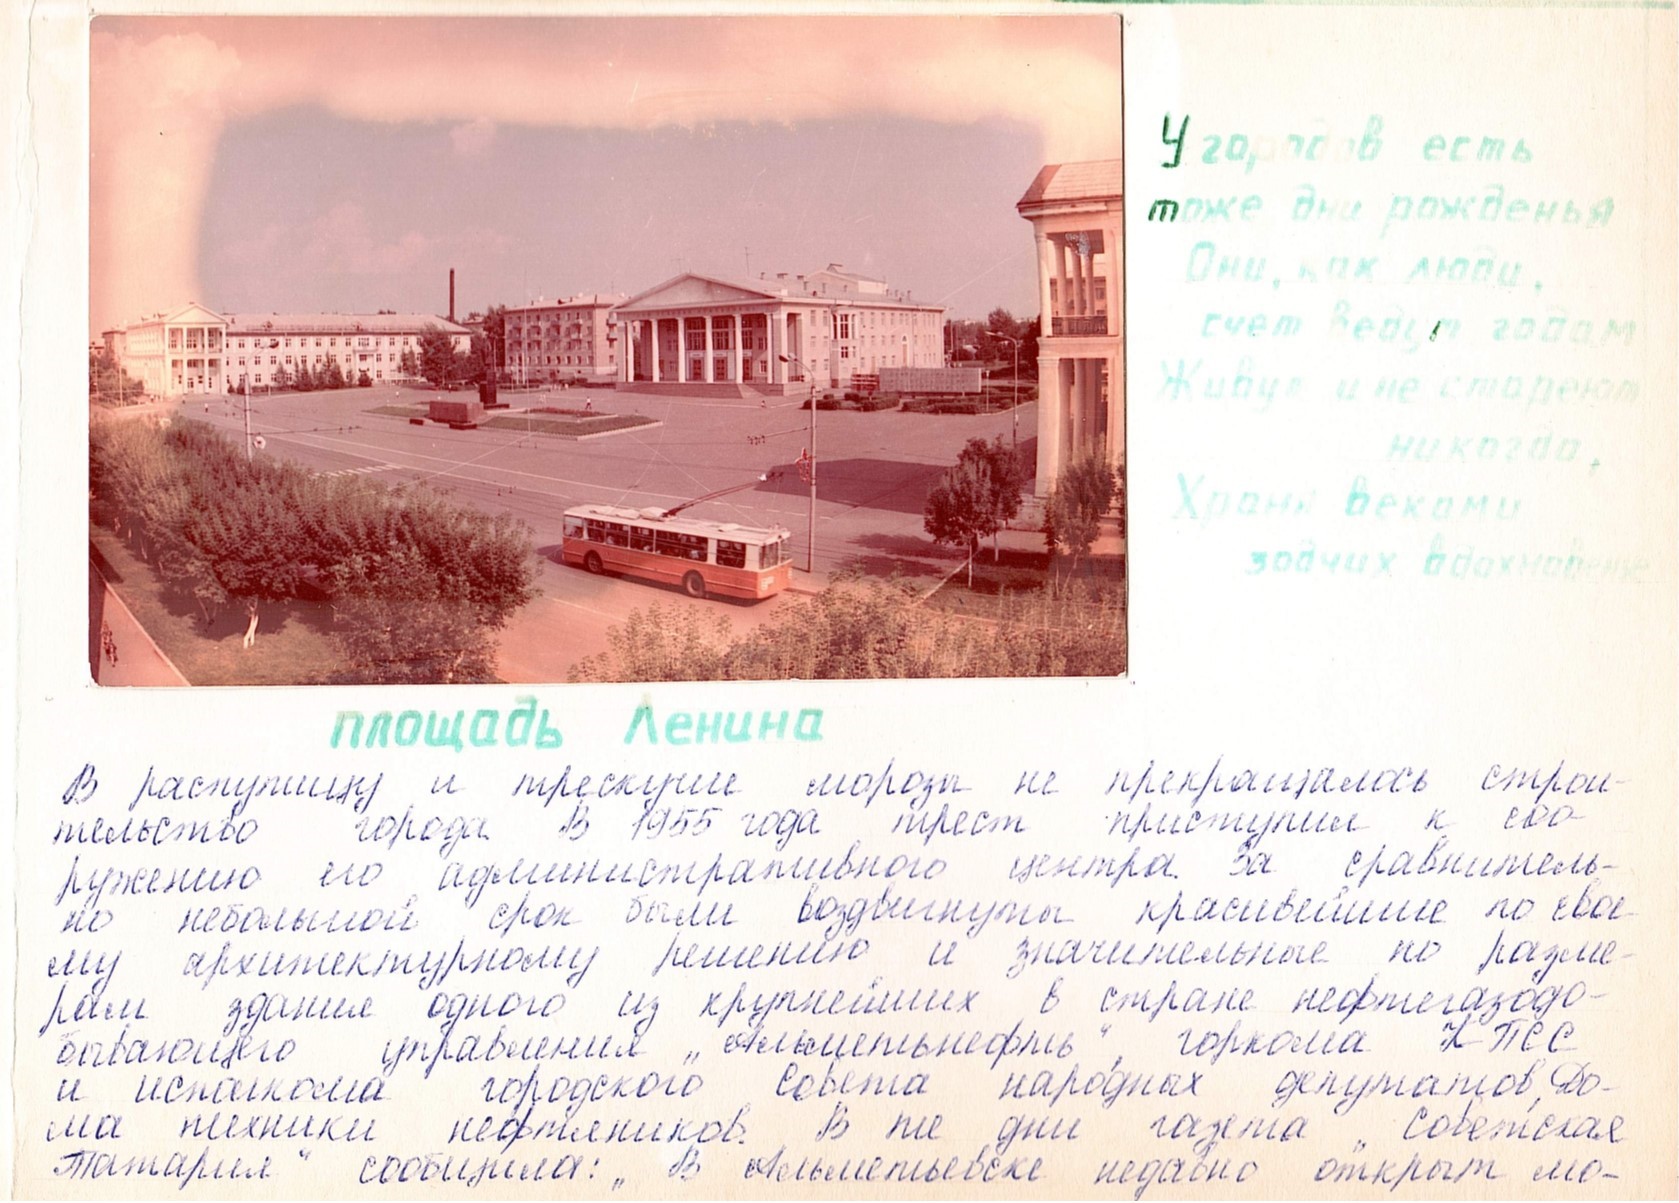 У городов есть
тоже дни рожденья
Они, как люди,
счет ведут годам
Живут и не стареют
никогда,
Храня веками
зодчих вдохновенье
площадь Ленина
В распутицу и трескучие морозы не прекращалось строи-
тельство города. В 1955 года трест приступил к соо-
ружению его административного центра. За сравнитель-
но небольшой срок были воздвигнуты красивейшие по свое-
му архитектурному решению и значительные по разме-
рам здания одного из крупнейших в стране нефтегазодо-
бывающего управления „Альметьнефть“, горкома КПСС
и исполкома городского Совета народных депутатов, До-
ма техники нефтяников. В те дни газета „Советская
Татария“ сообщила: „В Альметьевске недавно открыт мо-